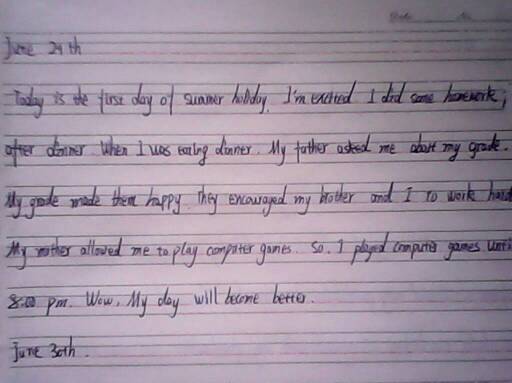 June 24th
Today is the first day of summer holiday. I'm excited I did some homework,
after dinner When I was eating dinner. My father asked me about my grade.
My grade made them happy They encouraged my brother and I to work hard
My mother allowed me to play computer games. So. I played computer games until
8:00 pm. Wow. My day will become better.
June 30th.